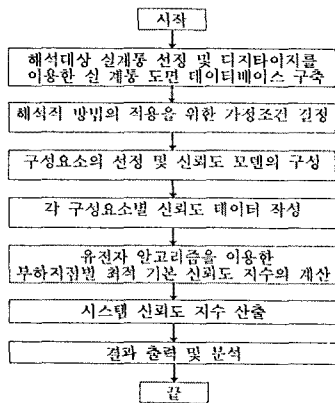 시작
해석대상 실계통 선정 및 디지타이저를
이용한 실 계통 도면 데이터베이스 구축
해석적 방법의 적용을 위한 가정조건 결정
구성요소의 선정 및 신뢰도 모델의 구성
각 구성요소별 신뢰도 데이터 작성
유전자 알고리즘을 이용한
부하지점별 최적 기본 신뢰도 지수의 계산
시스템 신뢰도 지수 산출
결과 출력 및 분석
끝